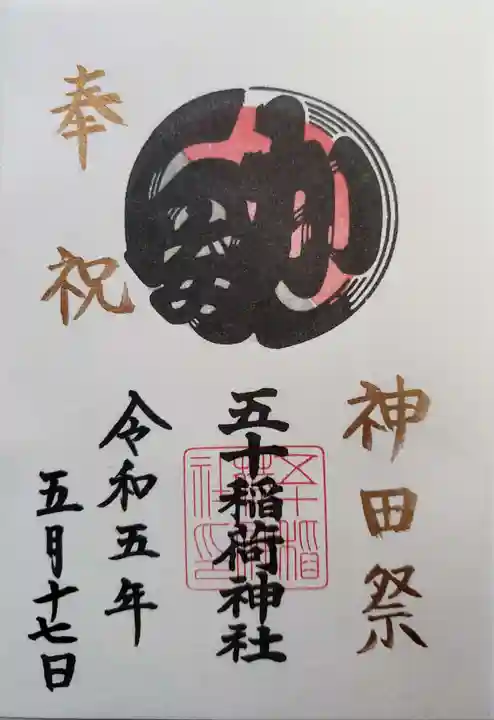 神田祭
五十稲荷神社
奉祝
令和五年
五月十七日